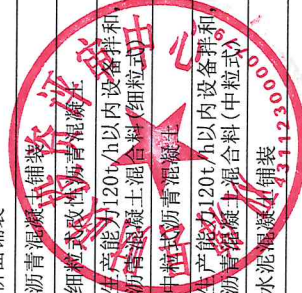 沥青混凝土铺装
细粒式改性沥青混凝土
生产能力120t/h以内设备拌和,
沥青混凝土混合料(细粒式)
中粒式沥青混凝土
生产能力120t/h以内设备拌和,
沥青混凝土混合料(中粒式)
水泥混凝土铺装
投资评审中心